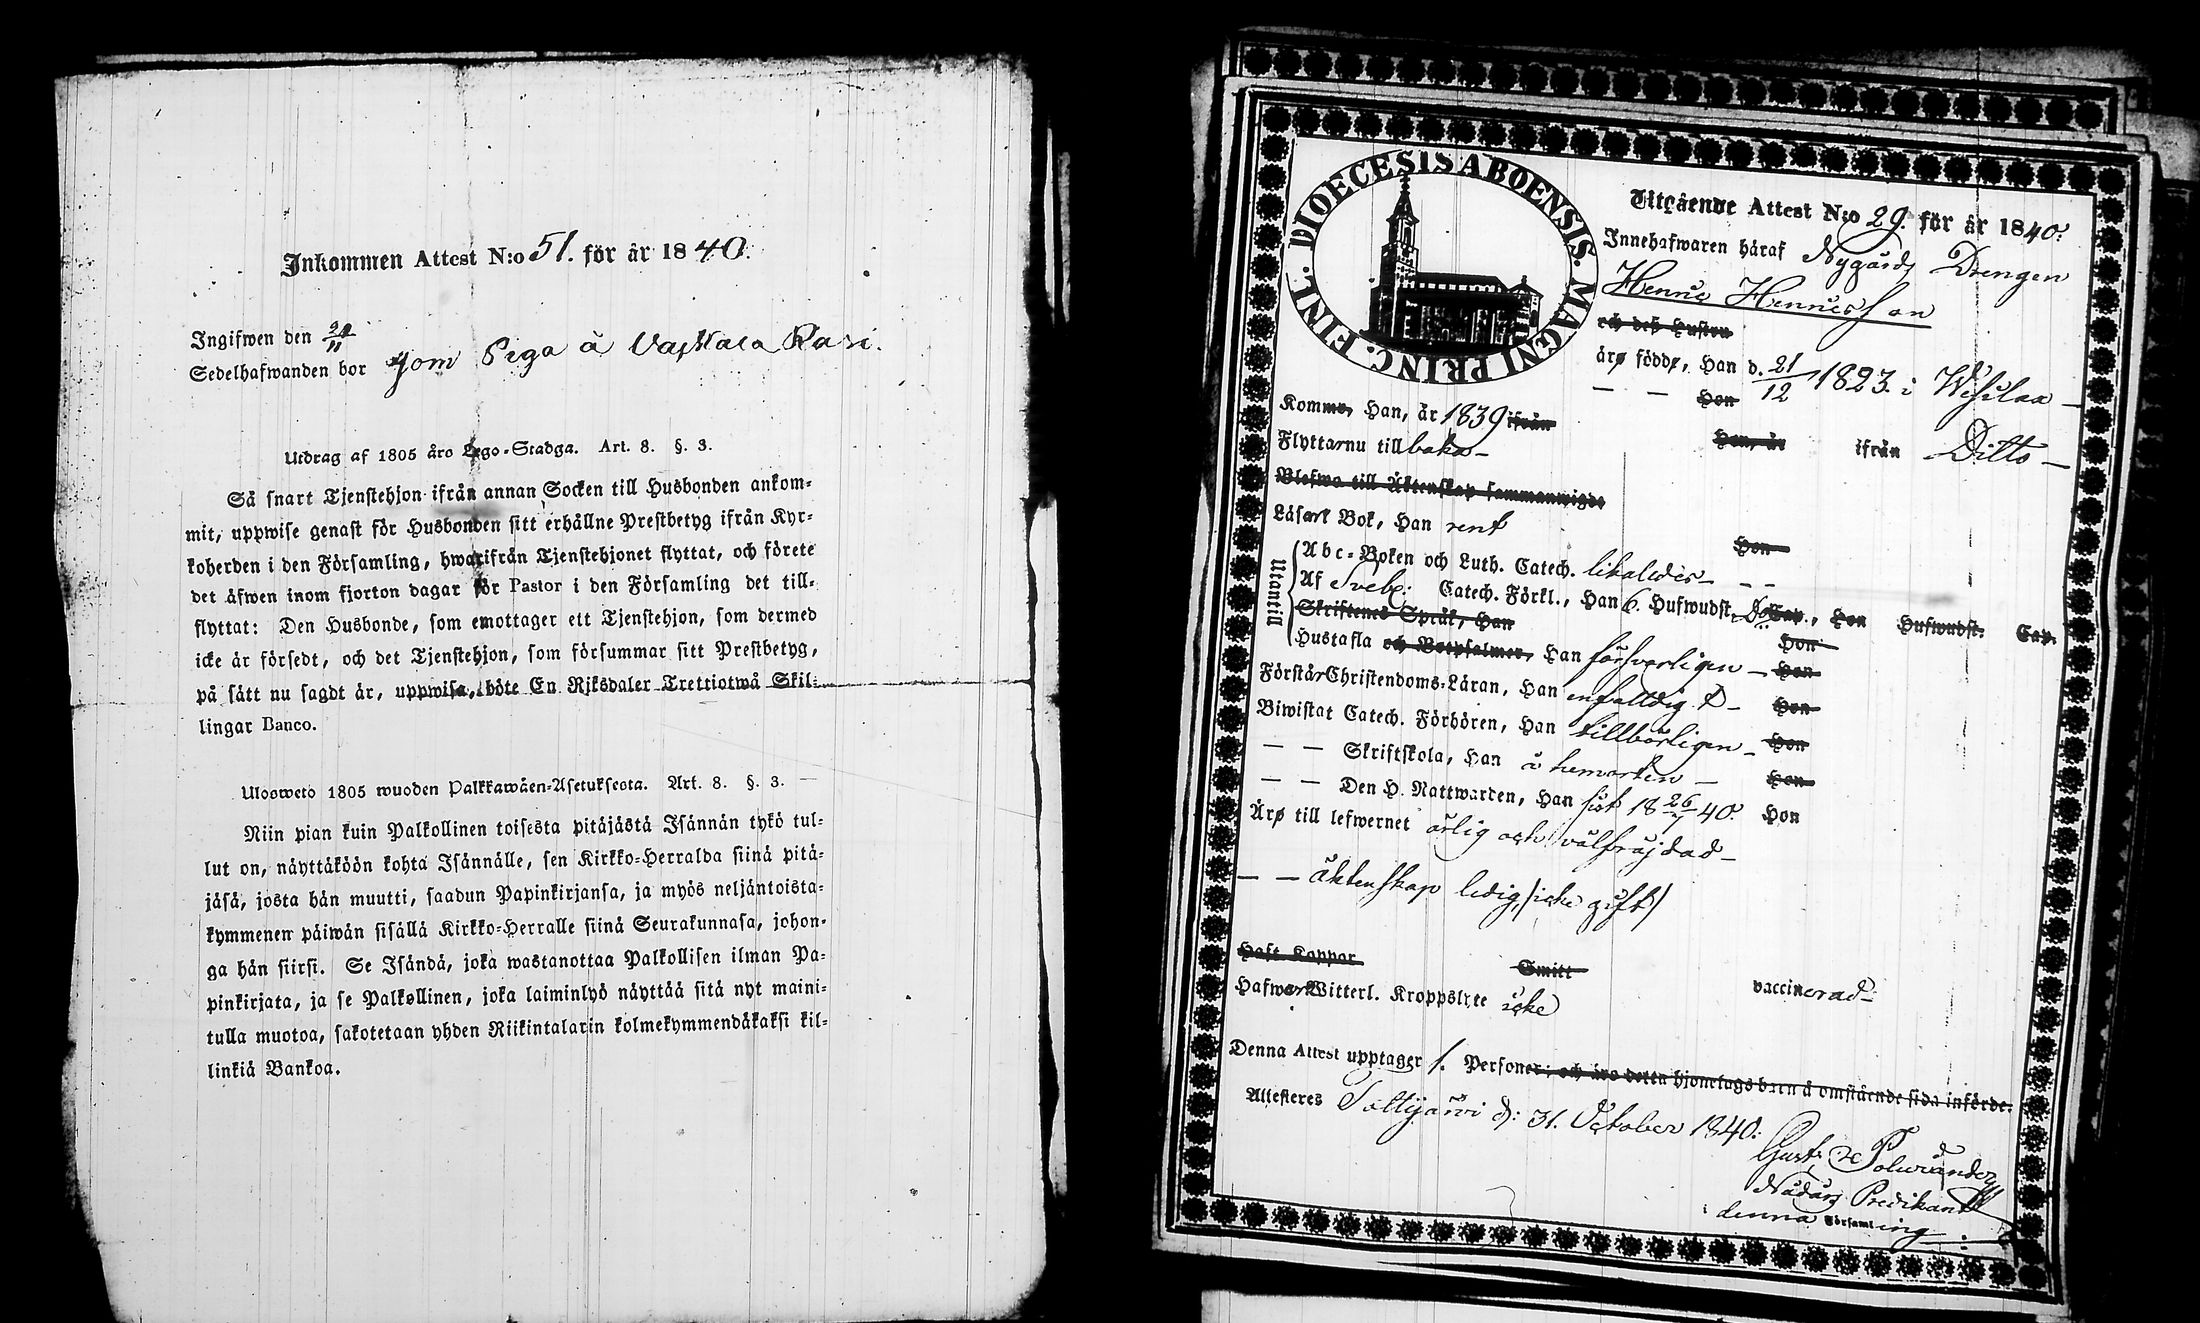 Inkommen Attest N:o 51. för år 1840.
Ingifwen den
Sedelhafwanden bor som Piga å Rasi.
Utdrag af 1805 års Lego-Stadga. Art. 8. §. 3.
Så snart Tjenstehjon ifrån annan Socken till Husbonden ankom-
mit, uppwise genast för Husbonden sitt erhållne Prestbetyg ifrån Kyr-
koherden i den Församling, hwarifrån Tjenstehjonet flyttat, och förete
det äfwen inom fjorton dagar för Pastor i den Församling det till-
flyttat: Den Husbonde, som emottager ett Tjenstehjon, som dermed
icke är försedt, och det Tjenstehjon, som försummar sitt Prestbetyg,
på sätt nu sagdt är, uppwisa, böte En Riksdaler Trettiotwå Skil-
lingar Banco.
Ulosweto 1805 wuoden Palkkawäen-Asetuksesta. Art. 8. §. 3.
Niin pian kuin Palkollinen toisesta pitäjästä Isännän tykö tul-
lut on, näyttäköön kohta Isännälle, sen Kirkko-Herralda siinä pitä-
jäsä, josta hän muutti, saadun Papinkirjansa, ja myös neljäntoista-
kymmenen päiwän sisällä Kirkko-Herralle siinä Seurakunnasa, johon-
ga hän siirsi. Se Isändä, joka wastanottaa Palkollisen ilman Pa-
pinkirjata, ja se Palkollinen, joka laiminlyö näyttää sitä nyt maini-
tulla muotoa, sakotetaan yhden Riikintalarin kolmekymmendäkaksi kil-
linkiä Bankoa.
DIOECESIS ABOENSIS. MAGNI PRINC. FINL.
Utgående Attest N:o 29. för år 1840.
Innehafwaren häraf Nygårds Drengen
Henric Henricsson
och deß Hustru
äro födde, Han d. 21/12 1823. i Wesilax
— — Hon
Kommo, Han, år 1839 ifrån Hon, år ifrån Ditto
Flyttar nu till baka
Blefwo till Äktenskap sammanwigde
Läsart Bok, Han rent Hon
Utantill
Abc-Boken och Luth. Catech. likaledes
Af Svebe: Catech. Förkl., Han 6. Hufwudst. Cap., Hon Hufwudst. Cap.
Skriftenes Språk, Han Hon
Hustafla och Botpsalmer, Han försvarligen Hon
Förstår Christendoms-Läran, Han enfalldigt Hon
Biwistat Catech. Förhören, Han tillbörligen Hon
— — Skriftskola, Han å hemorten Hon
— — Den H. Nattwarden, Han sist 18 26/7 40. Hon
Äro till lefwernet ärlig och välfräjdad
— — äktenskap ledig, /icke gift/
Haft Koppor Smitt vaccinerad
Hafwer Witterl. Kroppslyte icke
Denna Attest upptager 1. Personer; och äro detta hjonelags barn å omstående sida införde.
Attesteres Sottijärvi d: 31. October 1840.
Gust:
Nådårs Predikant
denna Församling